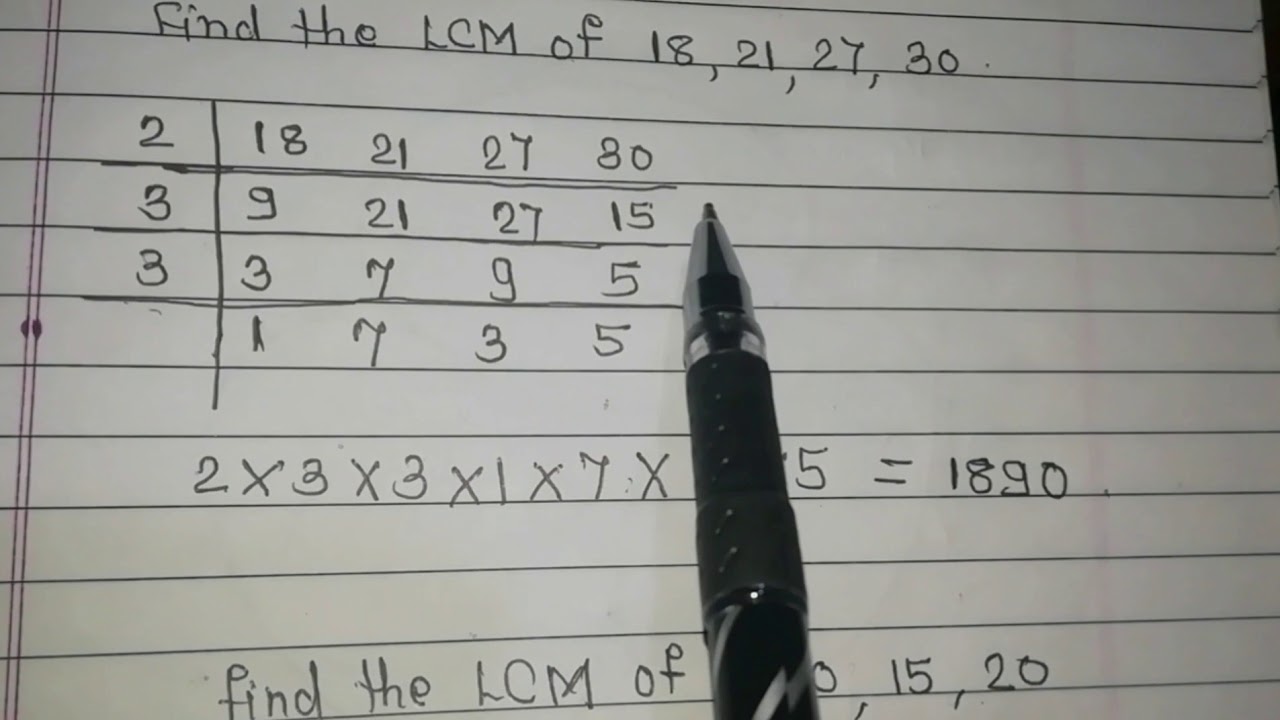 Find the LCM of 18, 21, 27, 30.
2 18 21 27 30
3 9 21 27 15
3 3 7 9 5
1 7 3 5
2 X 3 X 3 X 1 X 7 X 5 = 1890.
find the LCM of 0, 15, 20